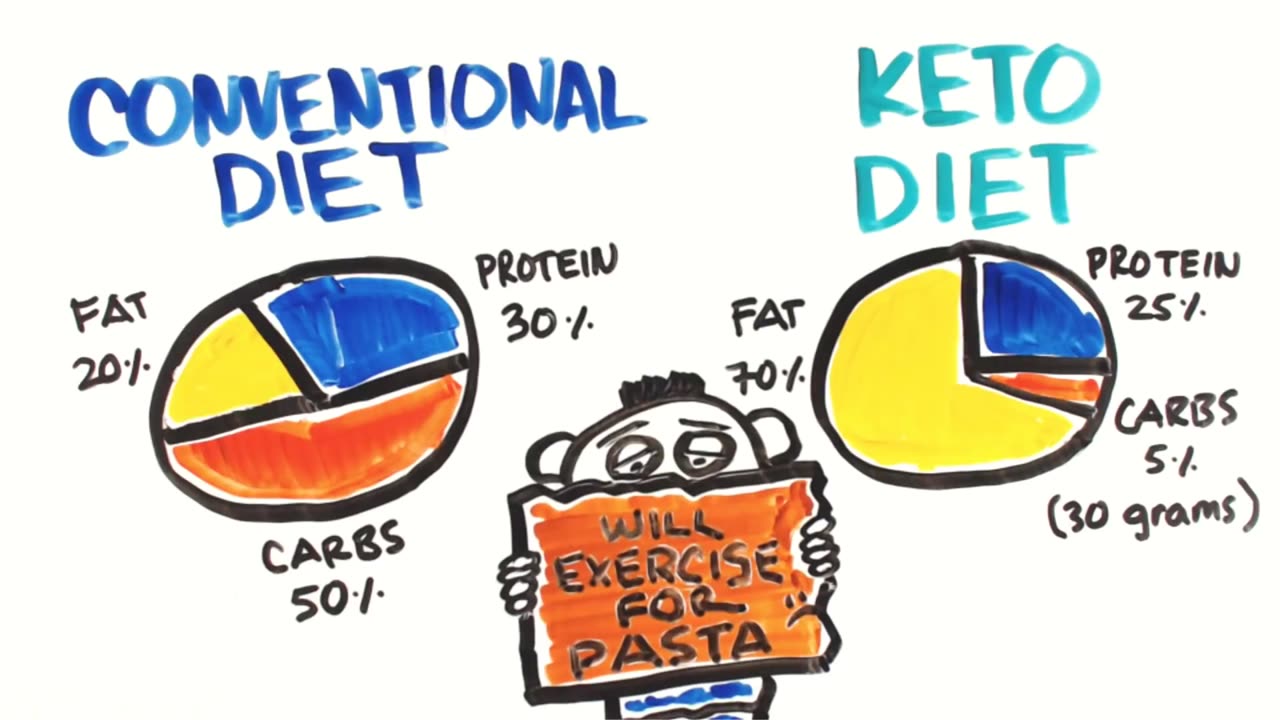 CONVENTIONAL
DIET
FAT
20%
PROTEIN
30%
CARBS
50%
KETO
DIET
FAT
70%
PROTEIN
25%
CARBS
5%
(30 grams)
WILL
EXERCISE
FOR
PASTA :(